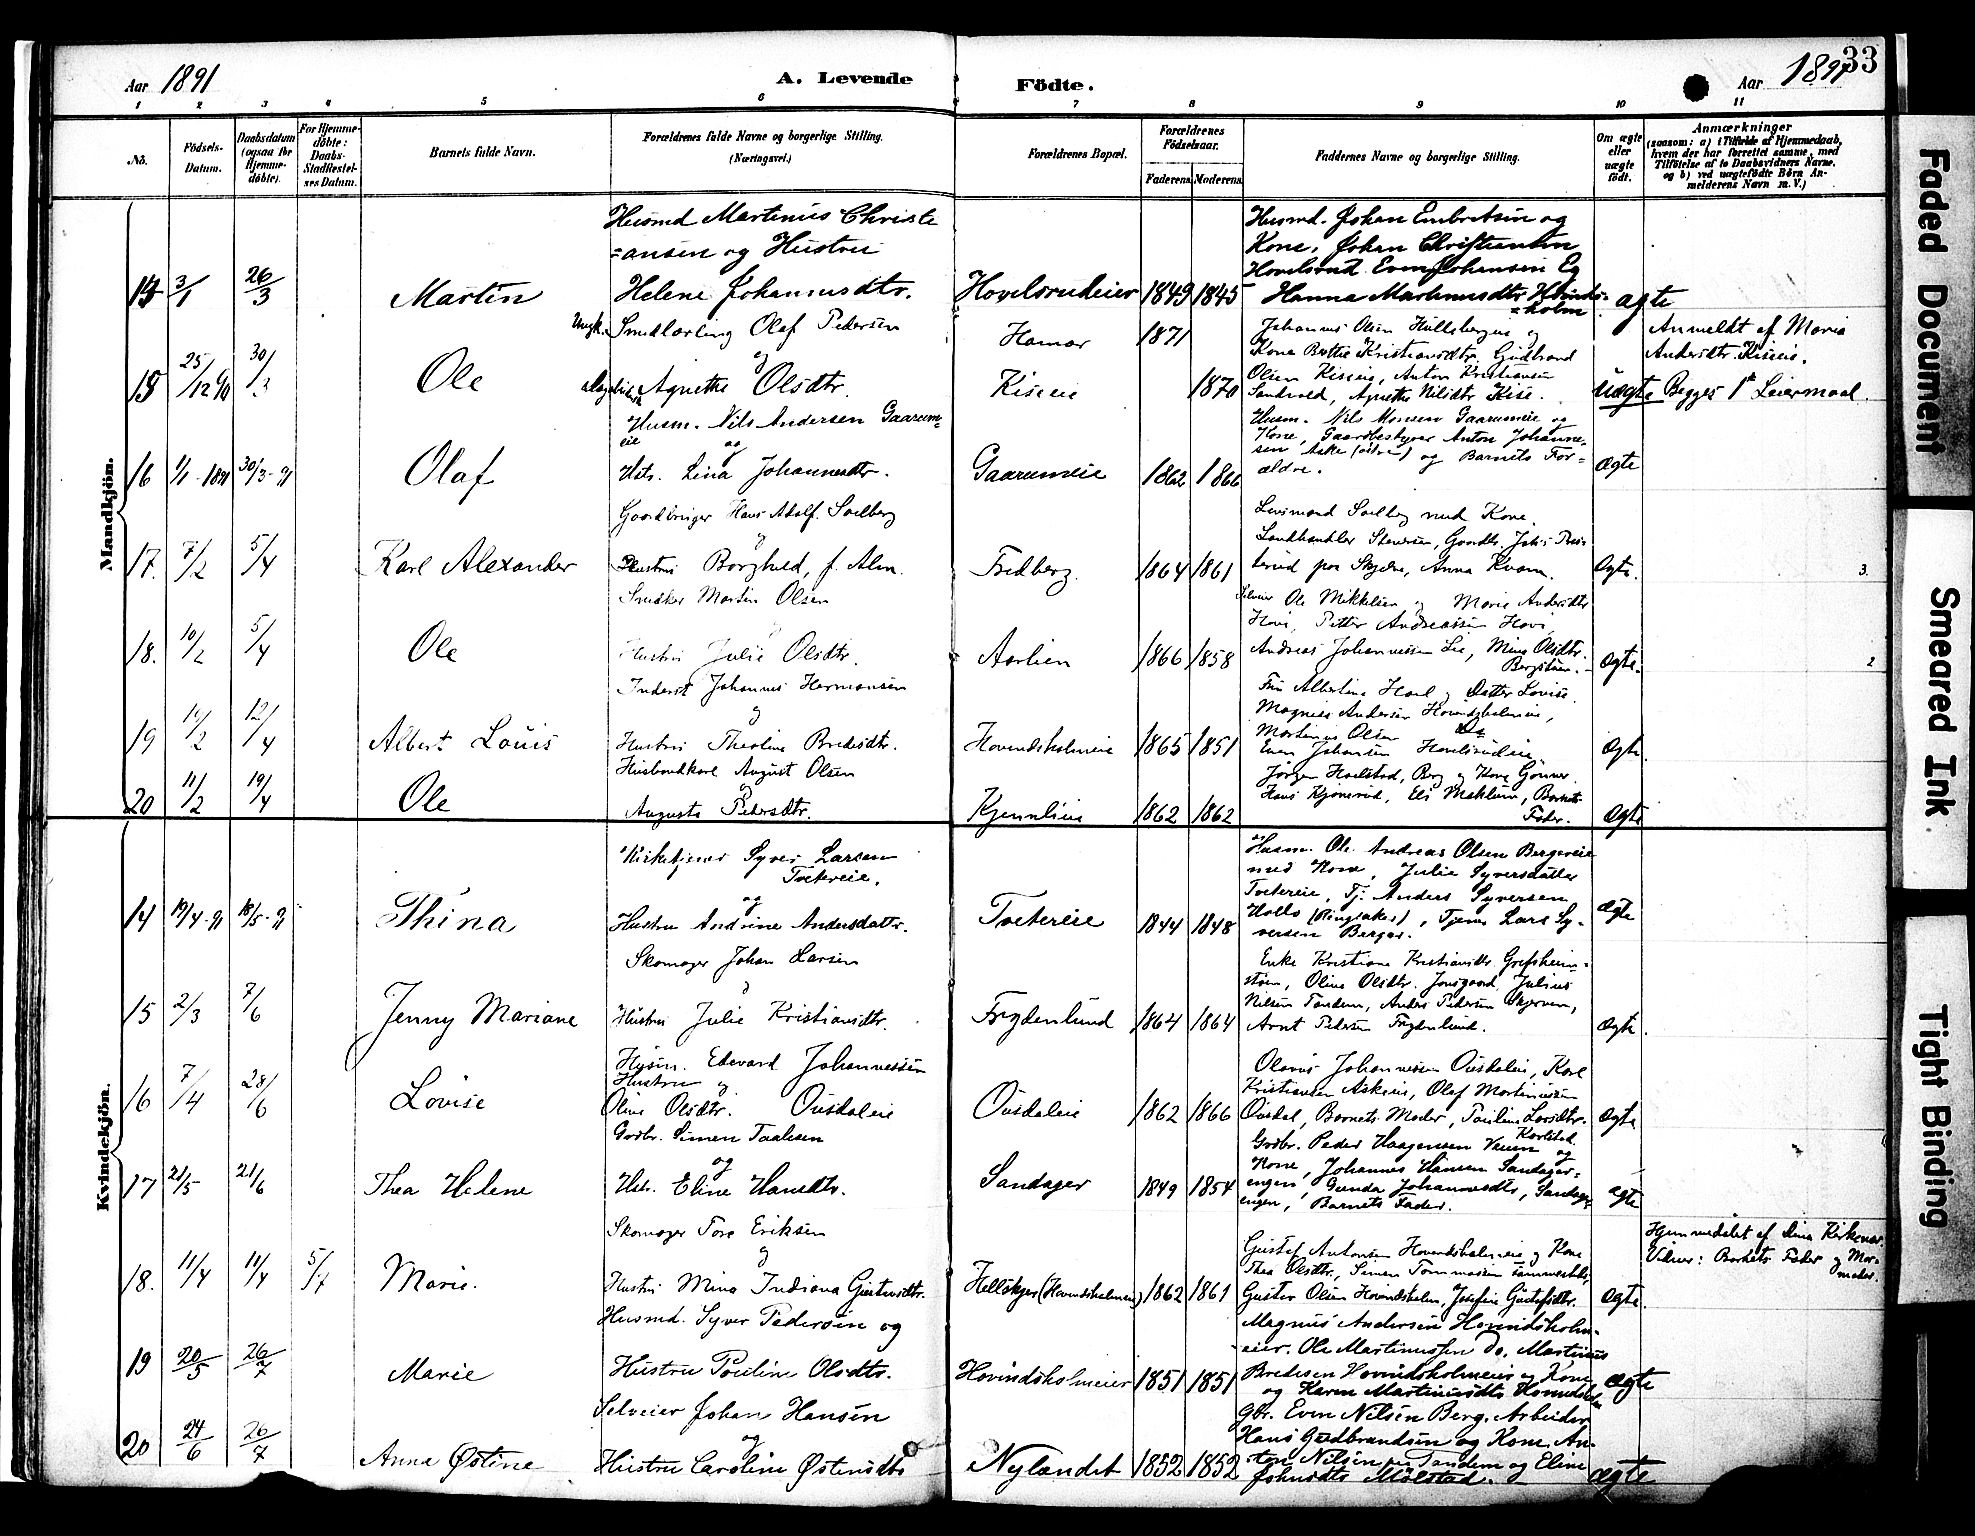 Aar 1891
A. Levende Födte.
Aar 1891
33
1 2 3 4 5 6 7 8 9 10 11
No.
Födsels-Datum.
Daabsdatum (ogsaa for Hjemme-döbte).
For Hjemme-döbte: Daabs-Stadfæstel-ses Datum.
Barnets fulde Navn.
Forældrenes fulde Navne og borgerlige Stilling. (Næringsvei.)
Forældrenes Bopæl.
Forældrenes Födselsaar.
Faderens Moderens
Faddernes Navne og borgerlige Stilling.
Om ægte eller uægte födt.
Anmærkninger
(saasom: a) i Tilfælde af Hjemmedaab, hvem der har forrettet samme, med Tilföielse af to Daabsvidners Navne, og b) ved uægtefödte Börn An-melderens Navn m. V.)
Mandkjön.
Husmd Martinus Christi
=ansen og Hustru
Helene Johannesdtr.
14 3/1 26/3 Martin Hovelsrudeier 1849 1845
Husmd. Johan Embretsen og
Kone, Johan Christiansen
Hovelsrud. Even Johansen Eg
Hanna Martinusdtr Hovinds-
=holm
ægte
15 25/12 90 30/3 Ole
Ungk. Smedlærling Olaf Pedersen
og
Agnethe Olsdtr.
Hamar 1871
Kiseeie 1870
Johannes Olsen Hullebergeie og
Kone Berthe Kristiansdtr. Gudbrand
Olsen Kiseeie, Anton Kristiansen
Sandvold, Agnethe Nilsdtr Kise.
uægte
Anmeldt af Maria
Andersdtr. Kiseeie.
Begges 1ste Leiermaal.
16 1/1-1891 30/3-91 Olaf
Husm. Nils Andersen Gaarum=
eie
og
Hstr. Lina Johannesdtr.
Gaarumeie 1862 1866
Husm. Nils Monsen Gaarumeie og
Kone, Gaardbestyrer Anton Johanne-
sen Aske (östre) og Barnets For=
ældre.
ægte
17. 7/2 5/4 Karl Alexander
Gaardbruger Hans Adolf Solberg
og
Hustru Borghild, f. Alm.
Fredberg. 1864 1861
Lensmand Solberg med Kone.
Landhandler Stenersen, Gaardb.
terud paa Skjelve, Anna Kvam.
Ægte. 3.
18. 10/2 5/4 Ole
Snedker Martin Olsen
og
Hustru Julie Olsdtr.
Aarlien 1866 1858
Selveier Ole Mikkelsen og Marie Andersdtr
Hovi, Petter Andreassen Hovi,
Andreas Johannessen Lie, Mina Olsdtr.
Bergstuen.
Ægte. 2
19 10/2 12/4 Albert Louis
Inderst Johannes Hermansen
og
Hustru Theoline Bredesdtr.
Hovindsholmeie 1865 1851
Fru Albertine Hoel og Datter Lovise.
Magnus Andersen Hovindsholmeie,
Martinus Olsen
Even Johansen Hovelsrudeie
Ægte.
20 11/2 19/4 Ole
Husbondkarl August Olsen
og
Augusta Pedersdtr.
Kjennlieie 1862 1862
Jörgen Hoelstad, Berg og Kone Gunner
Hans Kjöneröd, Els Mæhlum, Barnets
Fader.
Ægte
Kvindekjön.
14 19/4-91 18/5-91 Thina
Kirketjener Syver Larsen
Tveterei.
og
Hustru Andrine Andersdattr.
Tvetereie 1844 1848
Husm. Ole Andreas Olsen Bergereie
med Kone, Julie Syversdatter
Tvetereie, Tj. Anders Syversen
Hollo (Ringsaker), Tjener Lars Sy-
versen Berger.
Ægte
15 2/3 7/6 Jenny Mariane
Skomager Johan Larsen
og
Hustru Julie Kristiansdtr.
Frydenlund 1864 1864
Enke Kristiane Kristiansdtr. Grefsheim=
stöen, Oline Olsdtr. Jonsgaard, Julius
Nilsen Tandem, Anders Pedersen Skjerven,
Arnt Pedersen Frydenlund.
Ægte.
16 7/4 28/6 Lovise
Husm. Edevard Johannessen
Hustru og
Oline Olsdtr. Ousdaleie
Ousdaleie 1862 1866
Olaves Johannessen Ousdaleie, Karl
Kristiansen Askeeie, Olaf Martiniusen
Ousdal, Barnets Moder, Pauline Larsdtr.
Karlstad.
Ægte
17 21/5 21/6 Thea Helene
Gadbr. Simen Taalesen
og
Hstr. Eline Hansdtr.
Sandager 1849 1854
Gadbr. Peder Haagensen Veuen og
Kone, Johannes Hansen Sandager=
engen, Gunda Johannesdtr, Sandager
engen, Barnets Fader.
ægte
18. 11/4 11/4 5/7 Marie.
Skomager Tore Eriksen
og
Hustru Mina Indiana Gustavsdtr.
Hellskjer (Hovindsholmeie) 1862 1861
Gustaf Antonsen Hovindsholmeie og Kone
Thea Olsdtr, Simen Tommassen Sammestads,
Gustav Olsen Hovindsholm, Josefine Gustafsdtr.
Ægte.
Hjemmedöbt af Lina Kirkenær.
Vidner: Barnets Fader og Mor-
moder.
19 20/5 26/7 Marie
Husmd. Syver Pedersen og
Hustru Pouline Olsdtr.
Hovindsholmeier 1851 1851
Magnus Andersen Hovindsholm-
-eier. Ole Martinussen do. Martinus
Bredesen Hovindsholmeier og Kone
og Karen Martinusdtr
ægte
20 24/6 26/7 Anna Östine
Selveier Johan Hansen
og
Hustru Caroline Östensdtr
Nylandet 1852 1852
Gbr. Even Nilsen Berg, Arbeider
Hans Gudbrandsen og Kone, An-
ton Nilsen paa Tandem og Eline
Johnsdtr Mölstad.
ægte
Faded Document
Smeared Ink
Tight Binding